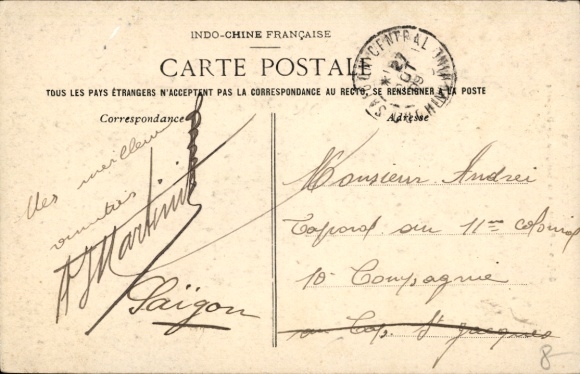 INDO-CHINE FRANÇAISE
CARTE POSTALE
TOUS LES PAYS ÉTRANGERS N'ACCEPTENT PAS LA CORRESPONDANCE AU RECTO, SE RENSEIGNER A LA POSTE
SAIGON CENTRAL
27
OCT
Correspondance
Adresse
Mes meilleurs
amitiés
Martini
Saïgon
Monsieur Andrei
Caporal au 11me colonial
10 Compagnie
au Cap St Jacques
8-